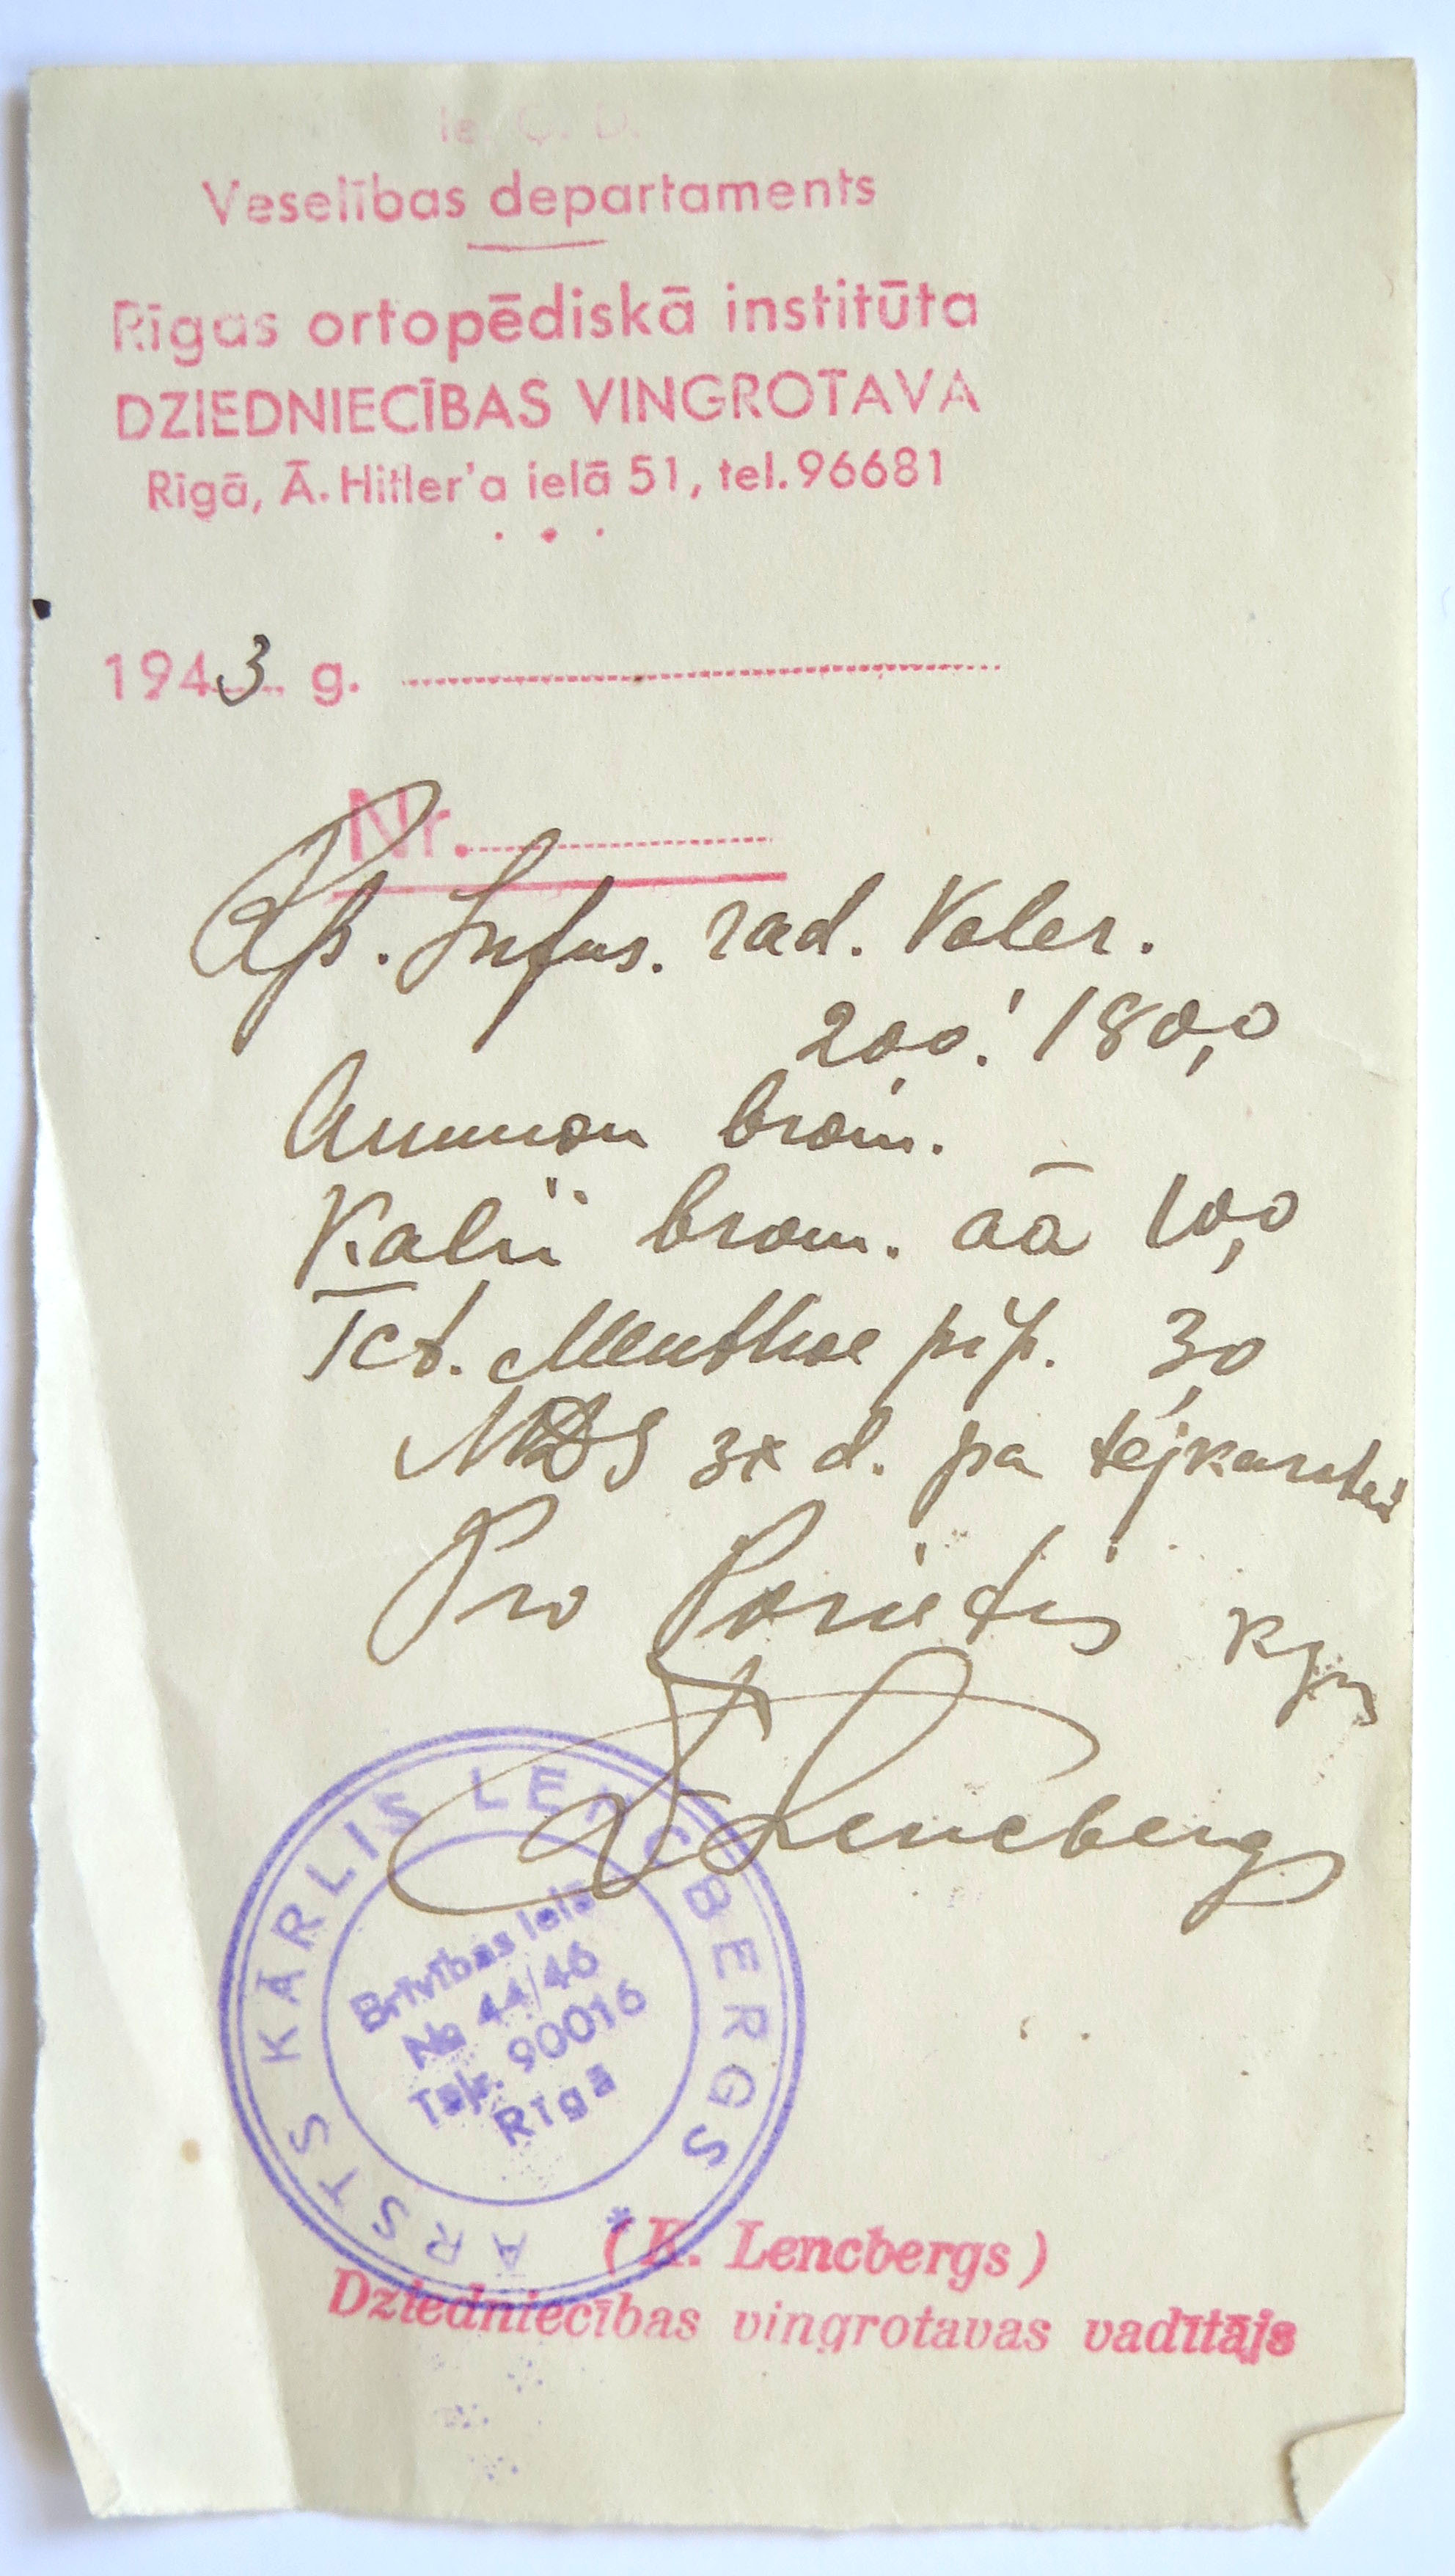 Ie. Ģ. D.
Veselības departaments
Rīgas ortopēdiskā institūta
DZIEDNIECĪBAS VINGROTAVA
Rīgā, Ā. Hitler'a ielā 51, tel. 96681
1943 g.
Nr.
Rp. Infus. rad. Valer.
20,0 : 180,0
Ammon brom.
Kalii brom. āā 10,0
Tct. Menthae pip. 3,0
MDS 3x d. pa tējkarotei
Pro Parietis kgs
K Lencberg
ĀRSTS KĀRLIS LENCBERGS *
Brīvības ielā
№ 44/46
Tālr. 90016
Rīgā
(K. Lencbergs)
Dziedniecības vingrotavas vadītājs